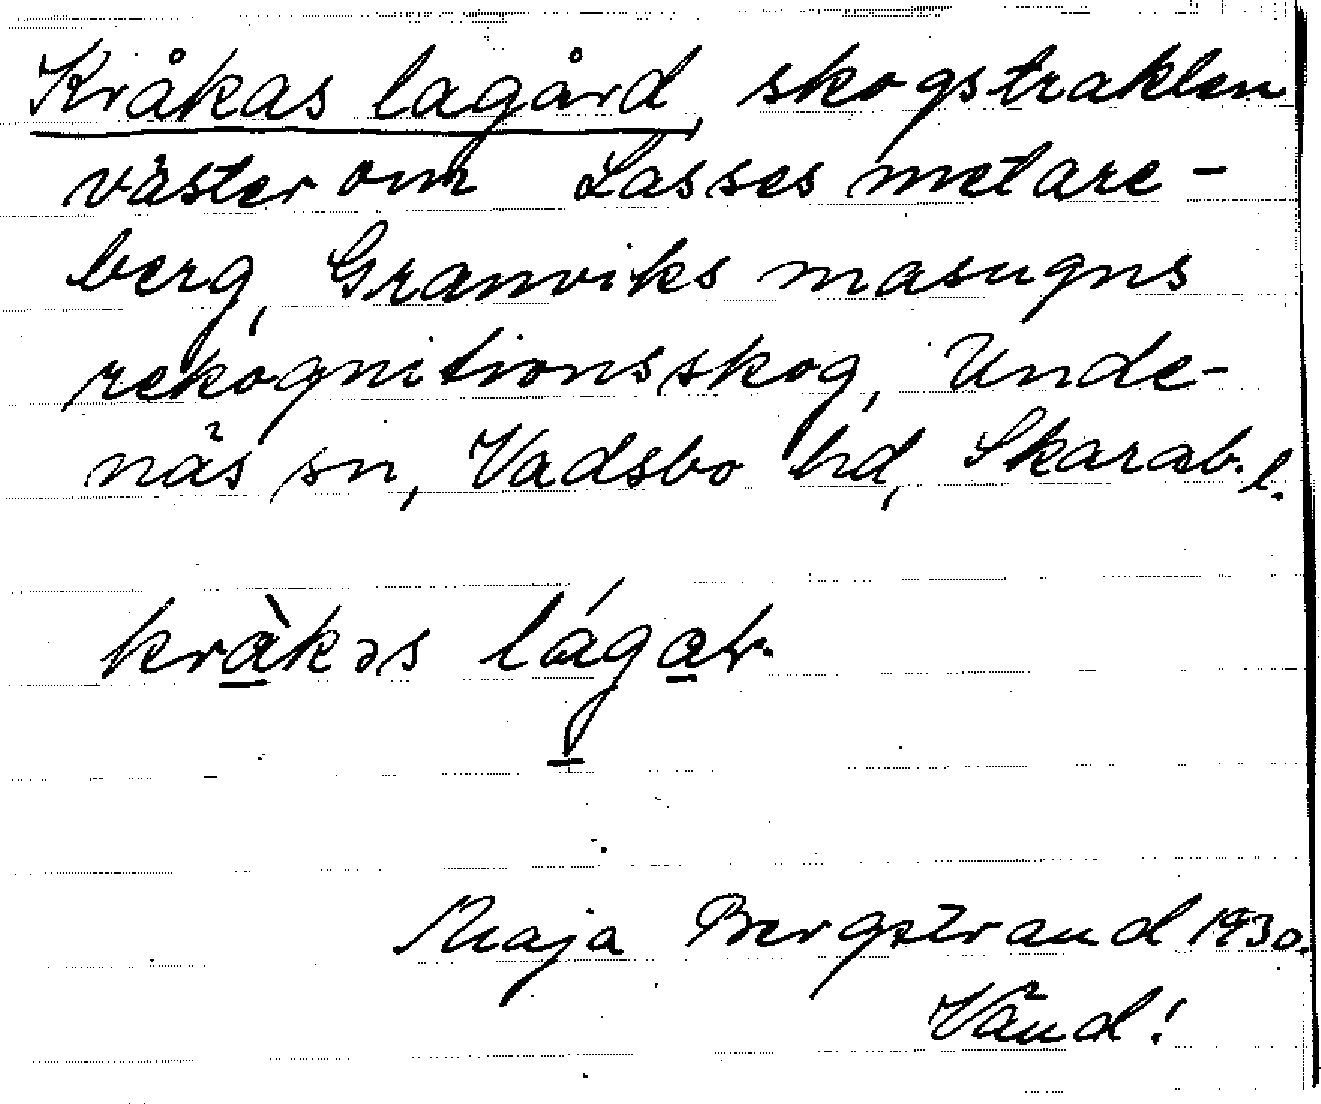 Kråkas lagård, skogstrakten
väster om Lasses metare-
berg, Granviks masugns
rekognitionsskog, Unde-
näs sn, Vadsbo hd, Skarab. l.
kràkəs lágaɽ.
Maja Bergstrand 1930.
Vänd!